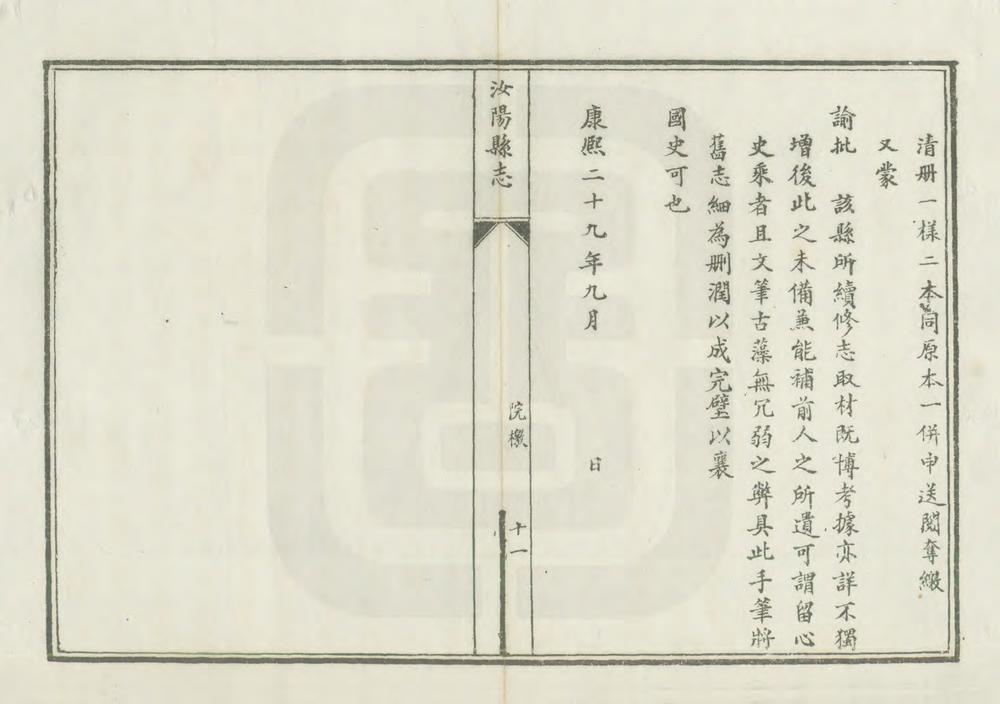 清册一樣二本同原本一併申送閱奪繳
又蒙
諭批 該縣所續修志取材既博考據亦詳不獨
增後此之未備兼能補前人之所遺可謂留心
史乘者且文筆古藻無冗弱之弊具此手筆將
舊志細為删潤以成完璧以襄
國史可也
康熙二十九年九月 日
汝陽縣志
院檄
十一